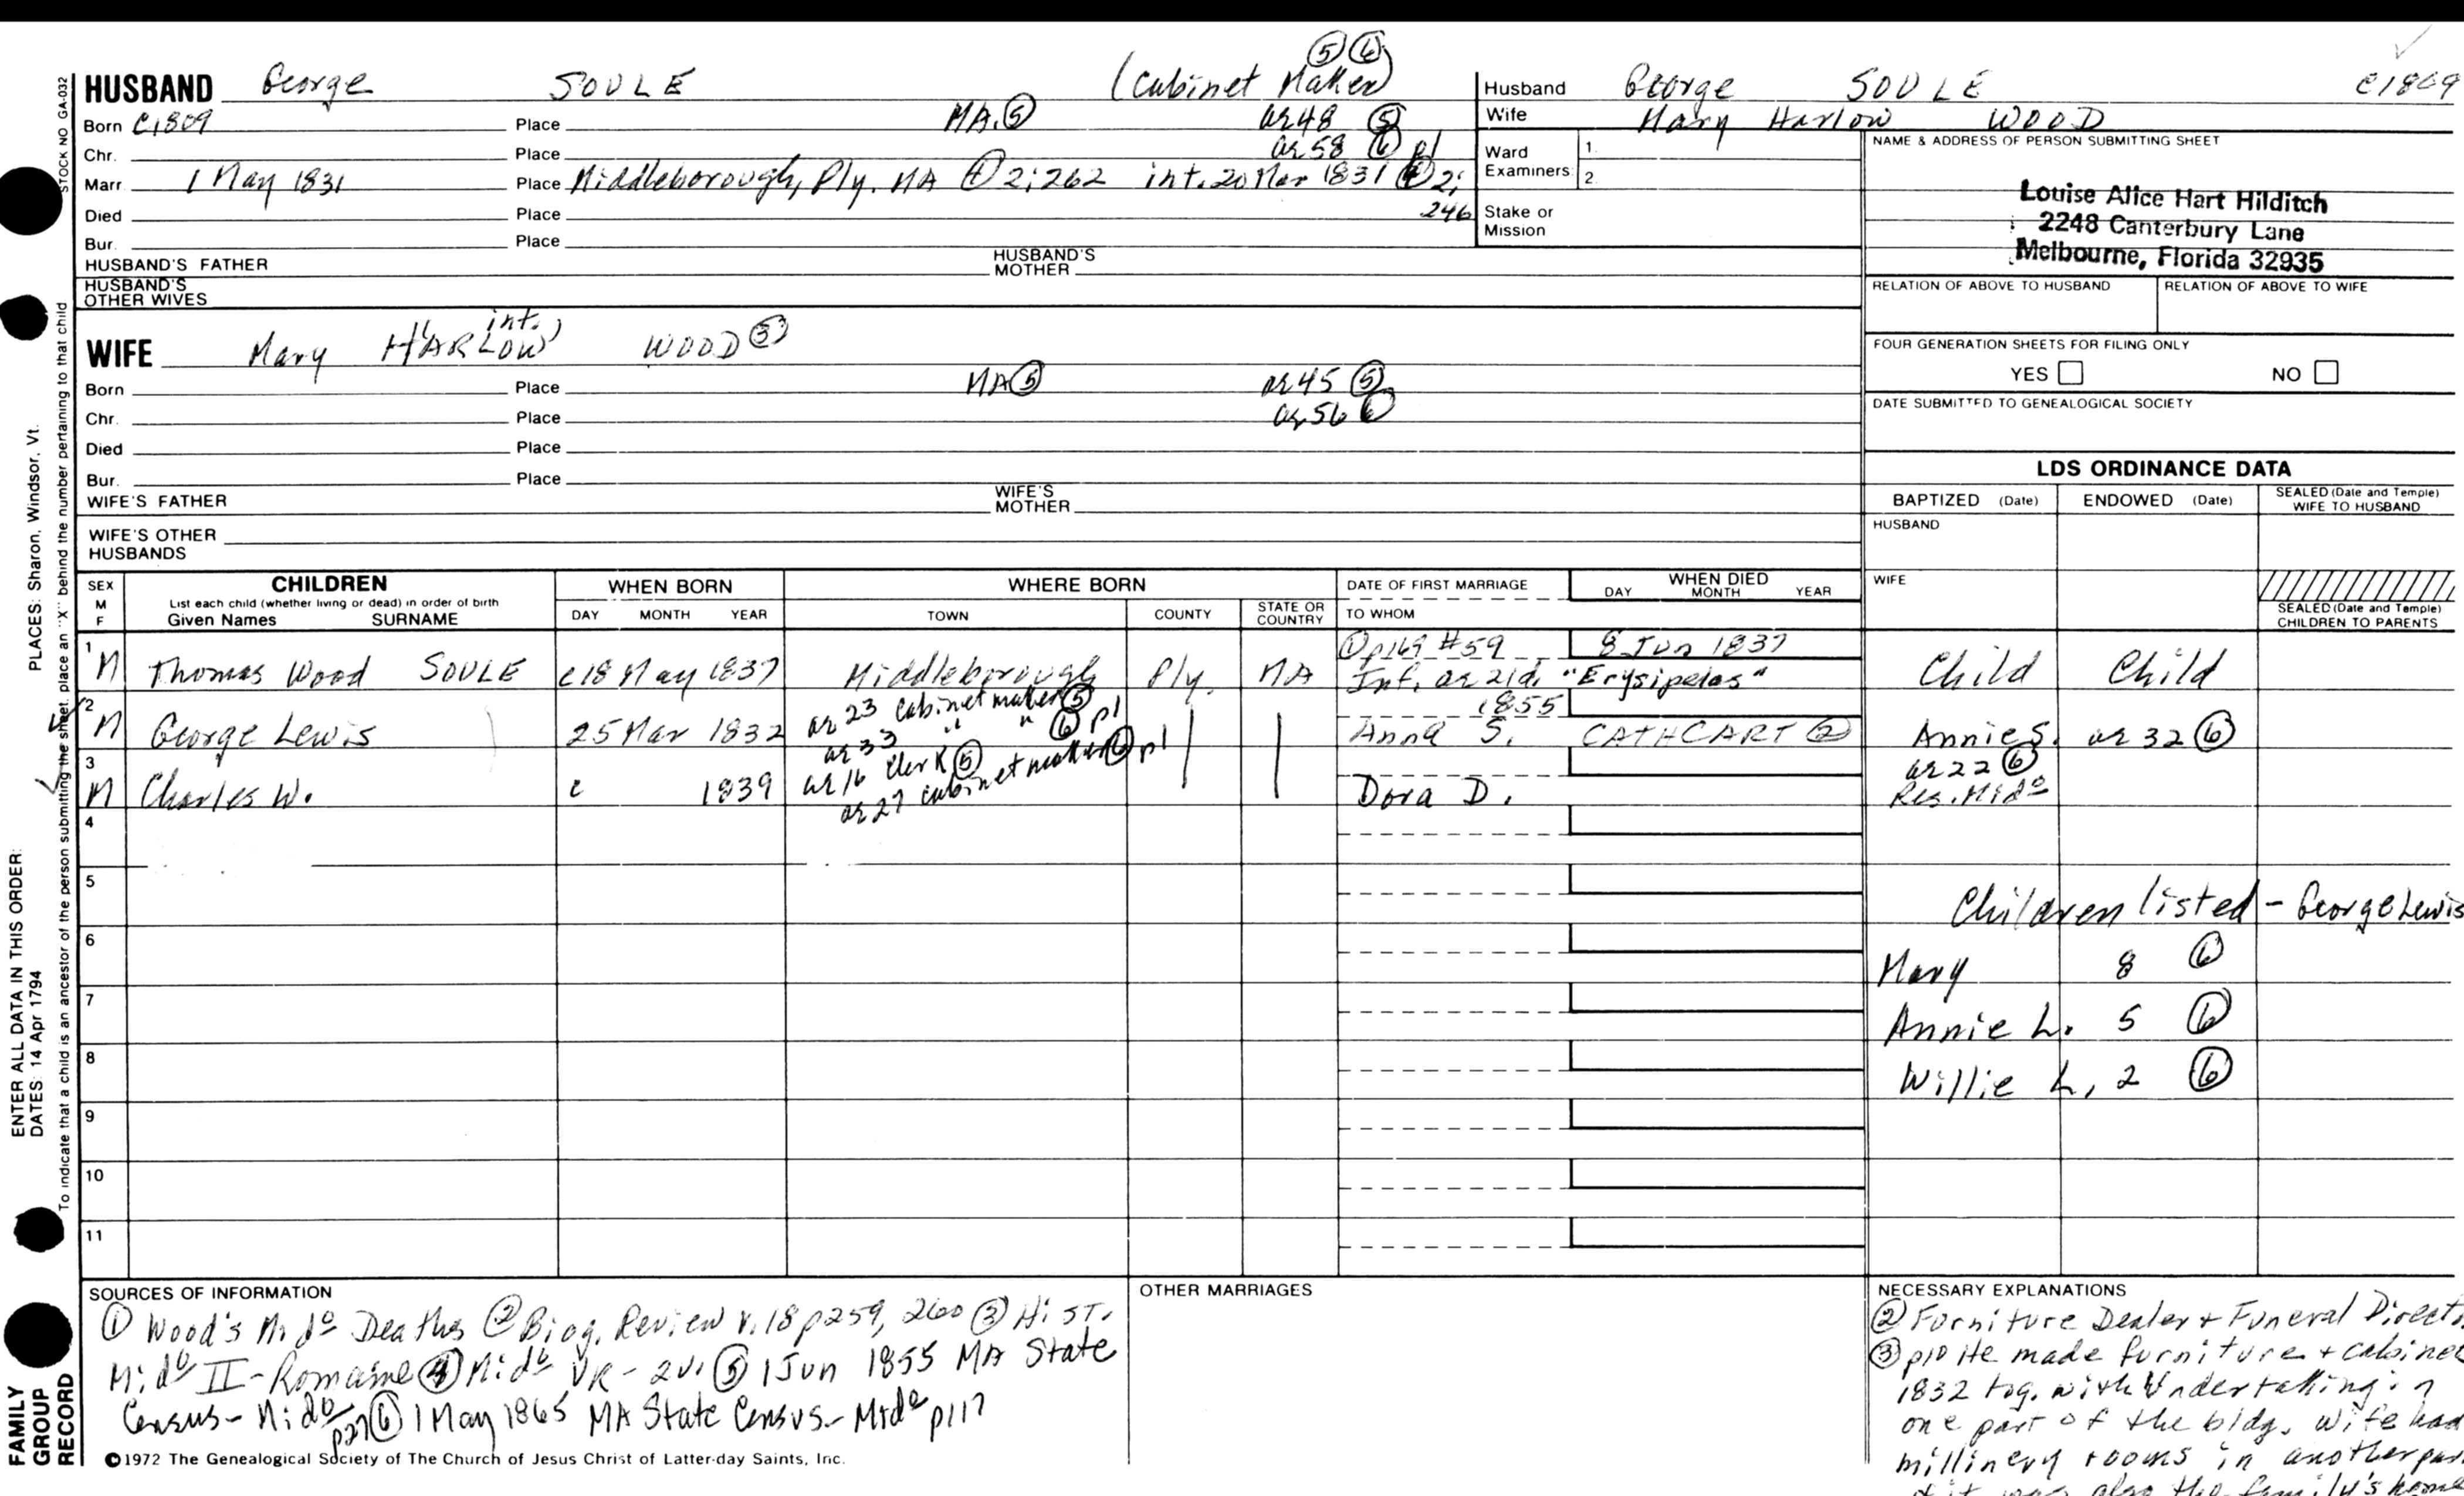 ⑤ ⑥
HUSBAND George SOULE (Cabinet Maker)
Born c1809 Place MA. ⑤ ae 48 ⑤
Chr. Place ae 58 ⑥ p1
Marr. 1 May 1831 Place Middleborough, Ply. MA ④ 2:262 int. 20 Mar 1831 ④ 2:
Died Place 246
Bur. Place
HUSBAND'S FATHER HUSBAND'S MOTHER
HUSBAND'S OTHER WIVES
int.
WIFE Mary HARLOW WOOD ③
Born Place MA ⑤ ae 45 ⑤
Chr. Place ae 56 ⑥
Died Place
Bur. Place
WIFE'S FATHER WIFE'S MOTHER
WIFE'S OTHER HUSBANDS
Husband George SOULE c1809
Wife Mary Harlow WOOD
Ward Examiners 1. 2.
Stake or Mission
NAME & ADDRESS OF PERSON SUBMITTING SHEET
Louise Alice Hart Hilditch
2248 Canterbury Lane
Melbourne, Florida 32935
RELATION OF ABOVE TO HUSBAND RELATION OF ABOVE TO WIFE
FOUR GENERATION SHEETS FOR FILING ONLY
YES NO
DATE SUBMITTED TO GENEALOGICAL SOCIETY
LDS ORDINANCE DATA
BAPTIZED (Date) ENDOWED (Date) SEALED (Date and Temple) WIFE TO HUSBAND
HUSBAND
WIFE
SEALED (Date and Temple) CHILDREN TO PARENTS
SEX M F
CHILDREN
List each child (whether living or dead) in order of birth
Given Names SURNAME
WHEN BORN
DAY MONTH YEAR
WHERE BORN
TOWN COUNTY STATE OR COUNTRY
DATE OF FIRST MARRIAGE
TO WHOM
WHEN DIED
DAY MONTH YEAR
① p169 #59 8 Jun 1837
1 M Thomas Wood SOULE c18 May 1837 Middleborough Ply. MA Inf. ae 21d. "Erysipelas" Child Child
ae 23 cabinetmaker ⑤ 1855
2 M George Lewis 25 Mar 1832 ae 33 " " ⑥ p1 Anna S. CATHCART ② Annie S. ae 32 ⑥
ae 16 clerk ⑤ ae 22 ⑥
3 M Charles W. c 1839 ae 27 cabinetmaker ⑥ p1 Dora D. Res. Mido
4
5
Children listed - George Lewis
6
Mary 8 ⑥
7
Annie L. 5 ⑥
8
Willie L, 2 ⑥
9
10
11
SOURCES OF INFORMATION
① Wood's Mido Deaths ② Biog. Review v.18 p259, 260 ③ Hist.
Mido II - Romaine ④ Mido VR - 2v. ⑤ 1 Jun 1855 MA State
Census - Mido p27 ⑥ 1 May 1865 MA State Census - Mido p117
OTHER MARRIAGES
NECESSARY EXPLANATIONS
② Furniture Dealer + Funeral
③ p10 He made furniture + cabinet
1832 tog. with Undertaking in
one part of the bldg. wife had
millinery rooms in another
was also the family's home
©1972 The Genealogical Society of The Church of Jesus Christ of Latter-day Saints, Inc.
STOCK NO GA-032
To indicate that a child is an ancestor of the person submitting the sheet, place an "X" behind the number pertaining to that child
PLACES: Sharon, Windsor, Vt.
ENTER ALL DATA IN THIS ORDER:
DATES: 14 Apr 1794
FAMILY
GROUP
RECORD